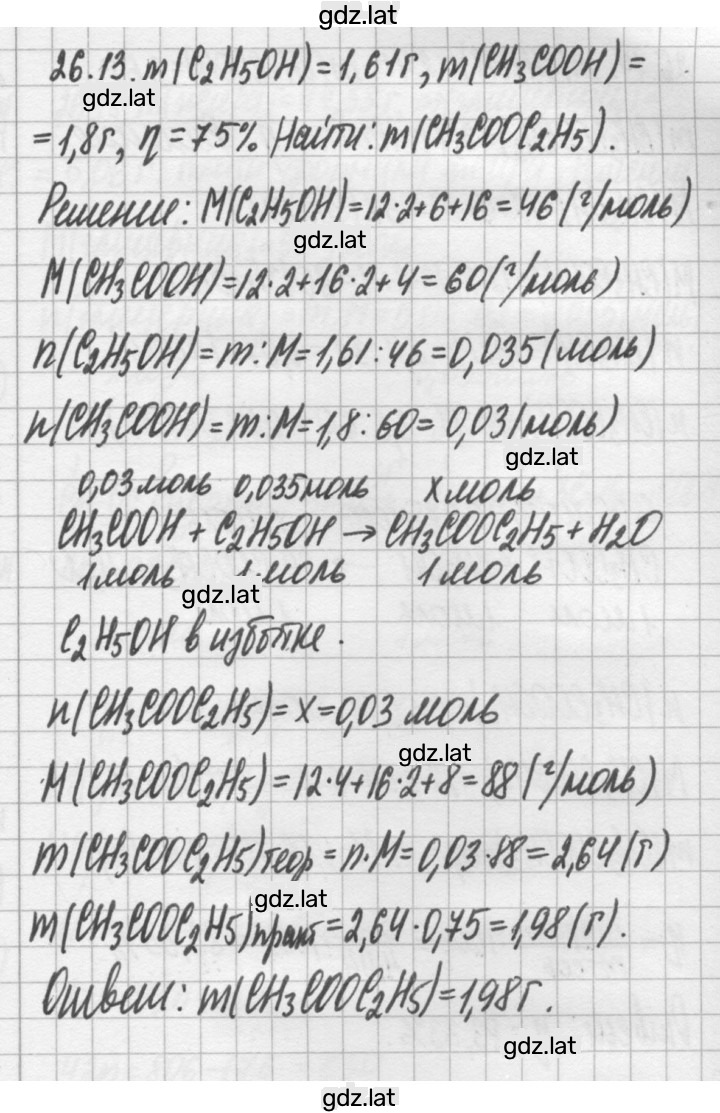 gdz.lat
26.13. m(C₂H₅OH) = 1,61г, m(CH₃COOH) =
gdz.lat
= 1,8г, η = 75% Найти: m(CH₃COOC₂H₅).
Решение: M(C₂H₅OH) = 12·2+6+16 = 46 (г/моль)
gdz.lat
M(CH₃COOH) = 12·2+16·2+4 = 60(г/моль)
n(C₂H₅OH) = m:M = 1,61:46 = 0,035(моль)
n(CH₃COOH) = m:M = 1,8:60 = 0,03(моль)
gdz.lat
0,03моль 0,035моль x моль
CH₃COOH + C₂H₅OH → CH₃COOC₂H₅ + H₂O
1моль 1 моль 1 моль
gdz.lat
C₂H₅OH в избытке.
n(CH₃COOC₂H₅) = x = 0,03 моль
gdz.lat
M(CH₃COOC₂H₅) = 12·4+16·2+8 = 88 (г/моль)
m(CH₃COOC₂H₅)теор = n·M = 0,03·88 = 2,64(г)
gdz.lat
m(CH₃COOC₂H₅)практ = 2,64·0,75 = 1,98(г).
Ответ: m(CH₃COOC₂H₅) = 1,98г.
gdz.lat
gdz.lat